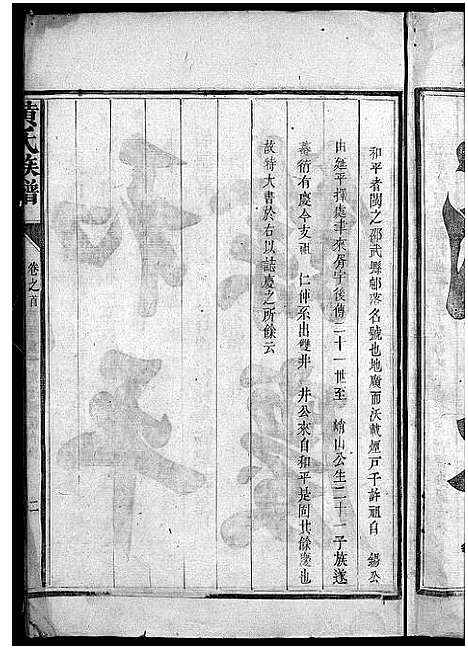 和平者閩之邵武縣邨落名號也地廣而沃載煙戸千許祖自 錫公
由延平擇處聿來胥宇後傳二十一世至 峭山公生二十一子族遂
蕃衍有慶今支祖 仁仲系出雙井 井公來自和平是固其餘慶也
故特大書於右以誌慶之所餘云
黃氏族譜
卷之首
二